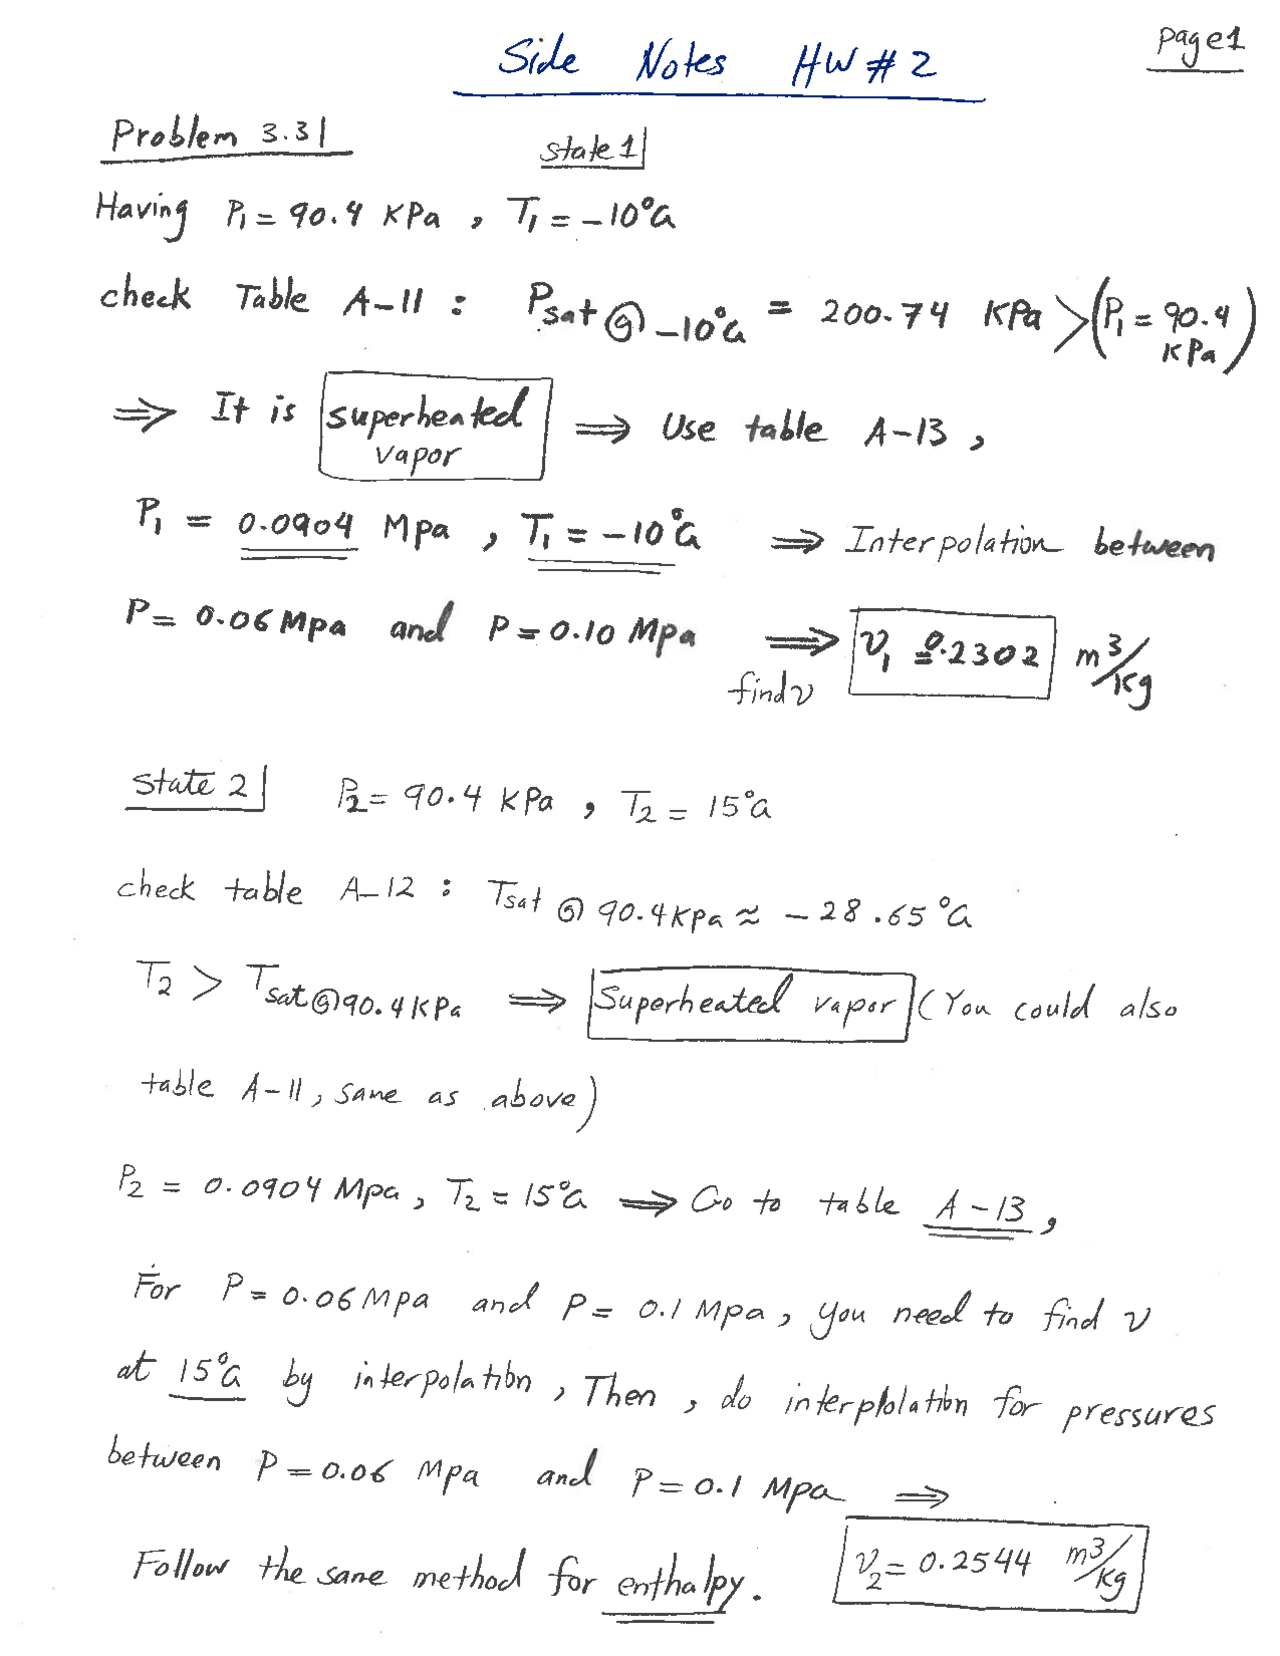 Side Notes HW # 2
page 1
Problem 3.31
state 1
Having P₁ = 90.4 KPa , T₁ = -10°C
check Table A-11 : Psat @ -10°C = 200.74 KPa > (P₁ = 90.4 KPa)
⇒ It is superheated vapor ⇒ Use table A-13 ,
P₁ = 0.0904 Mpa , T₁ = -10°C ⇒ Interpolation between
P = 0.06 Mpa and P = 0.10 Mpa ⇒ find v v₁ = 0.2302 m³/kg
State 2 P₂ = 90.4 KPa , T₂ = 15°C
check table A-12 : Tsat @ 90.4 KPa ≈ -28.65°C
T₂ > Tsat @ 90.4 KPa ⇒ Superheated vapor (You could also
table A-11, same as above)
P₂ = 0.0904 Mpa , T₂ = 15°C ⇒ Go to table A-13 ,
For P = 0.06 Mpa and P = 0.1 Mpa , you need to find v
at 15°C by interpolation , Then , do interplolation for pressures
between P = 0.06 Mpa and P = 0.1 Mpa ⇒
Follow the same method for enthalpy. v₂ = 0.2544 m³/kg